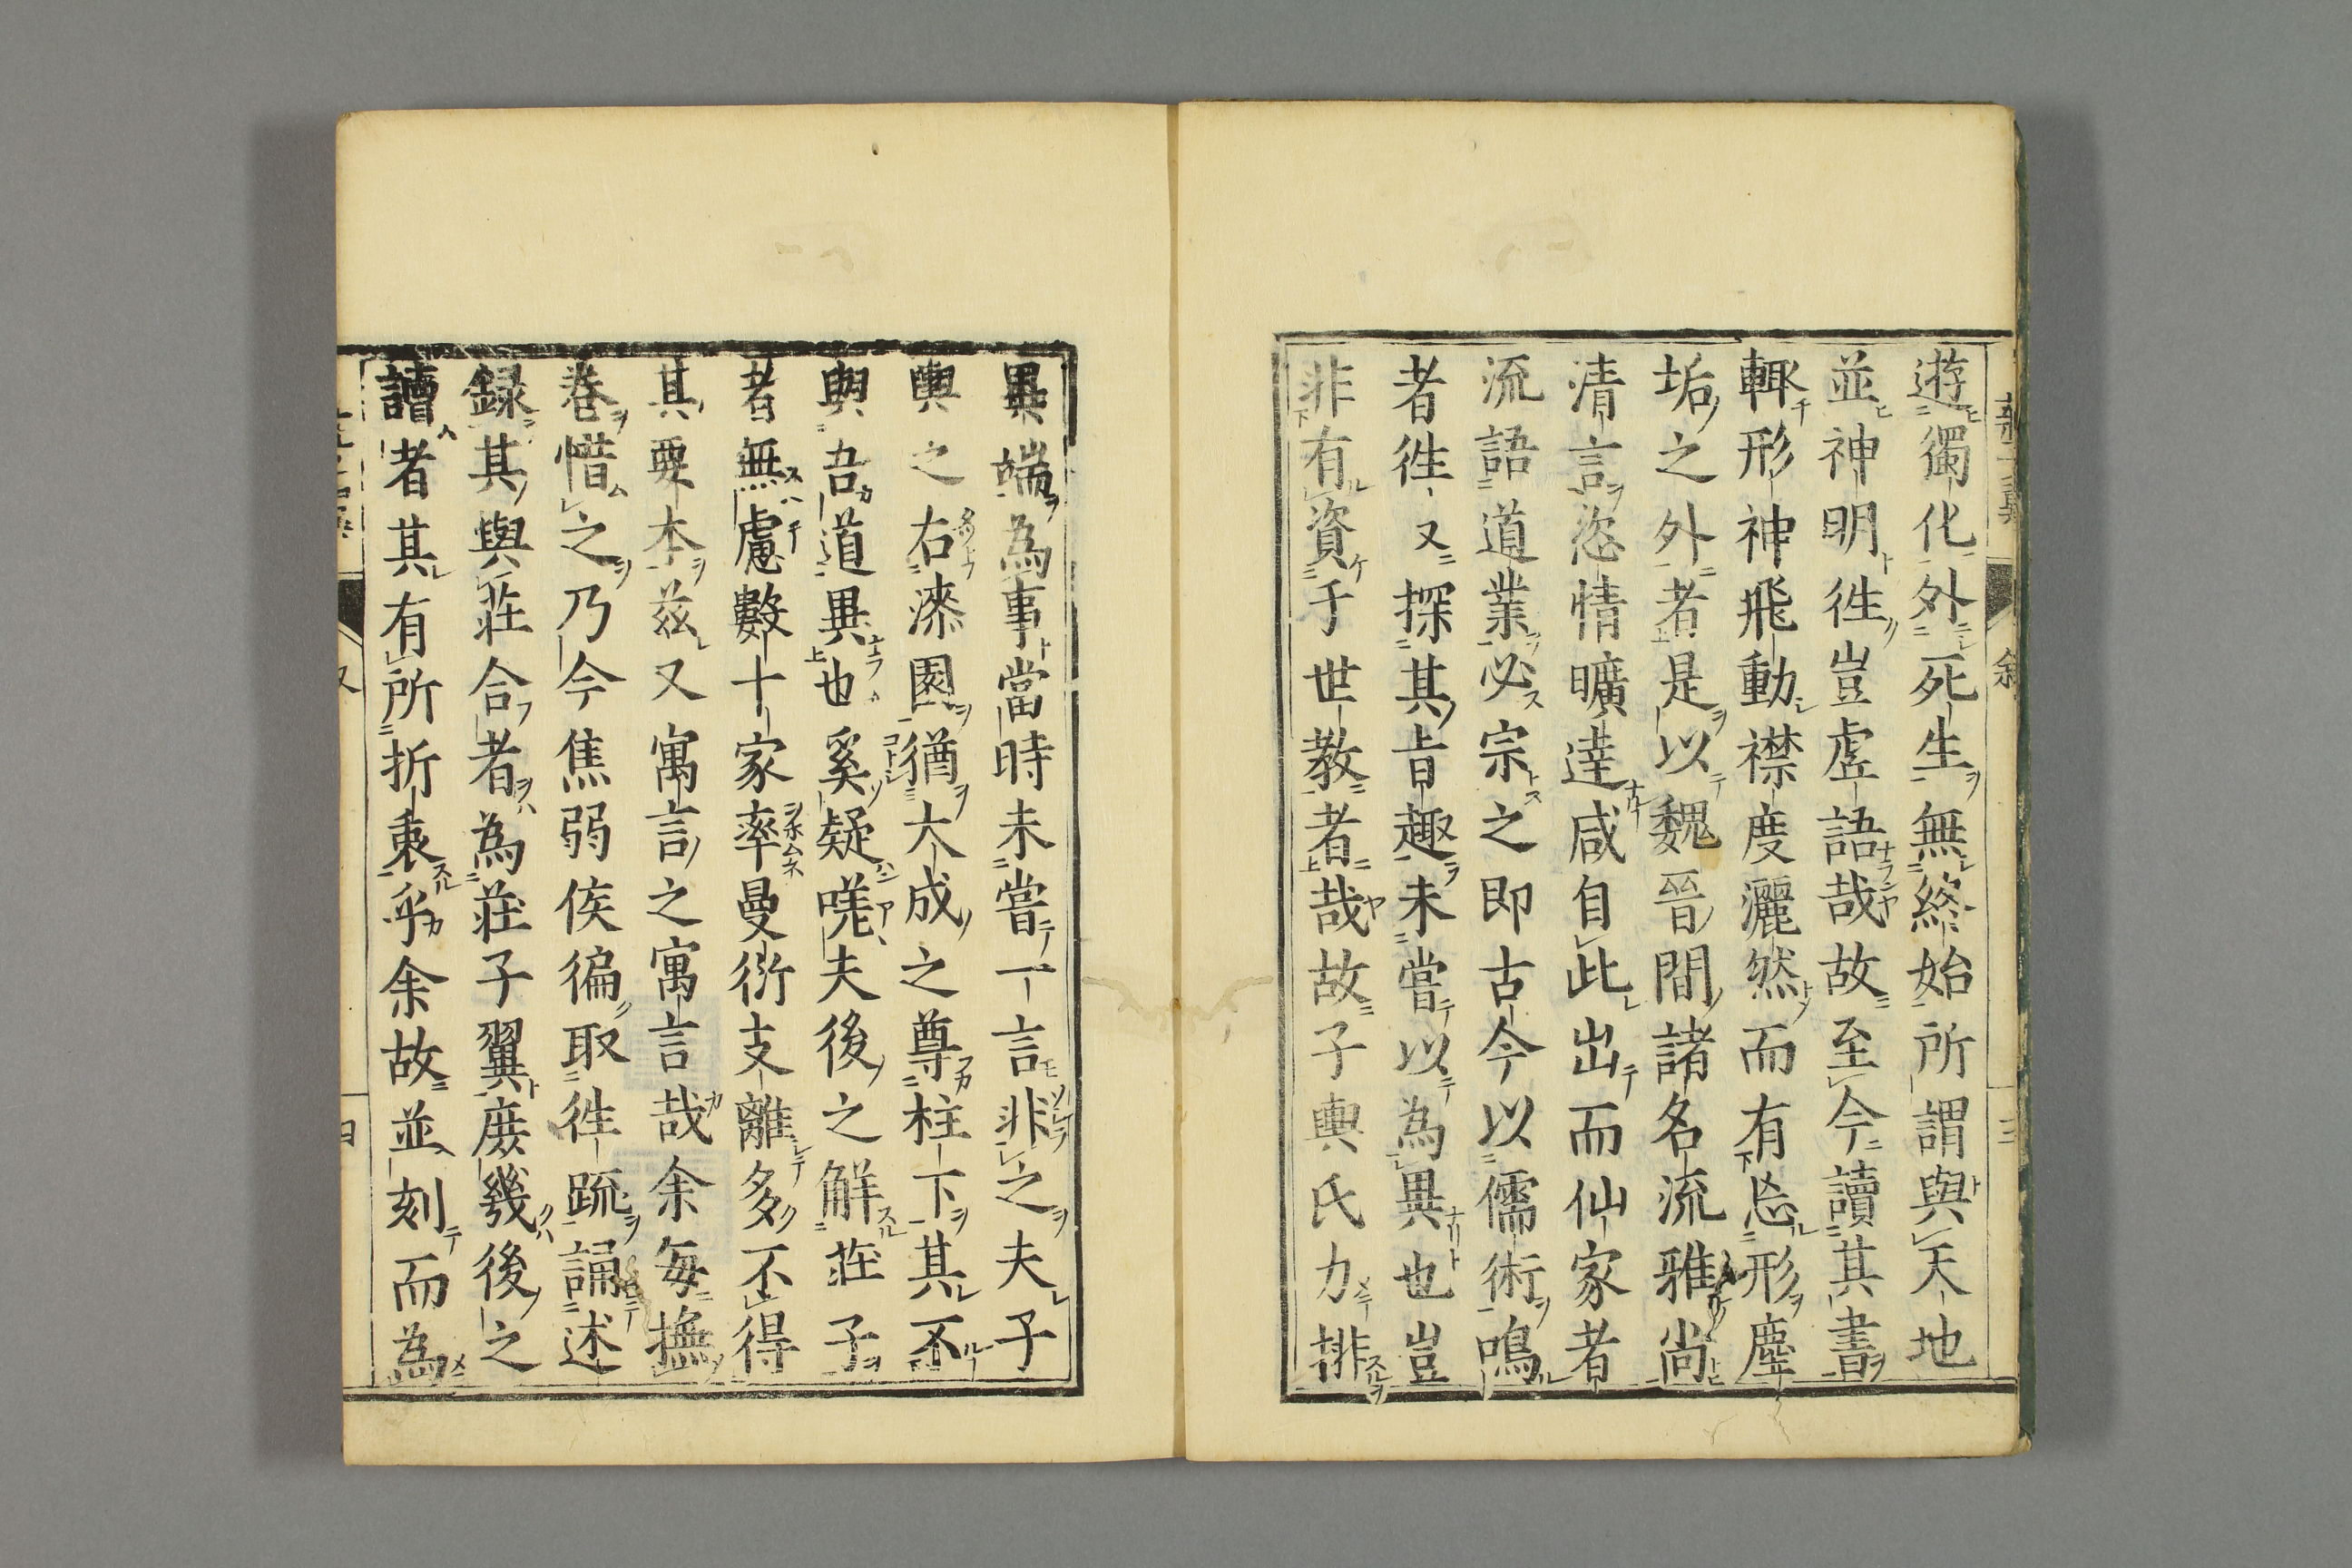 遊獨化外死生無終始所謂與天地
並神明往豈虛語哉故至今讀其書
輙形神飛動襟度灑然而有忘形塵
垢之外者是以魏晉間諸名流雅尚
清言恣情曠達咸自此出而仙家者
流語道業必宗之即古今以儒術鳴
者徃又探其旨趣未嘗以為異也豈
非有資于世教者哉故子輿氏力排
異端為事當時未嘗一言非之夫子
輿之右漆園猶大成之尊柱下其不
與吾道異也奚疑嗟夫後之解莊子
者無慮數十家率曼衍支離多不得
其要本茲又寓言之寓言哉余每撫
卷惜之乃今焦弱侯徧取徃疏誦述
録其與莊合者為莊子翼庶幾後之
讀者其有所折衷乎余故並刻而為